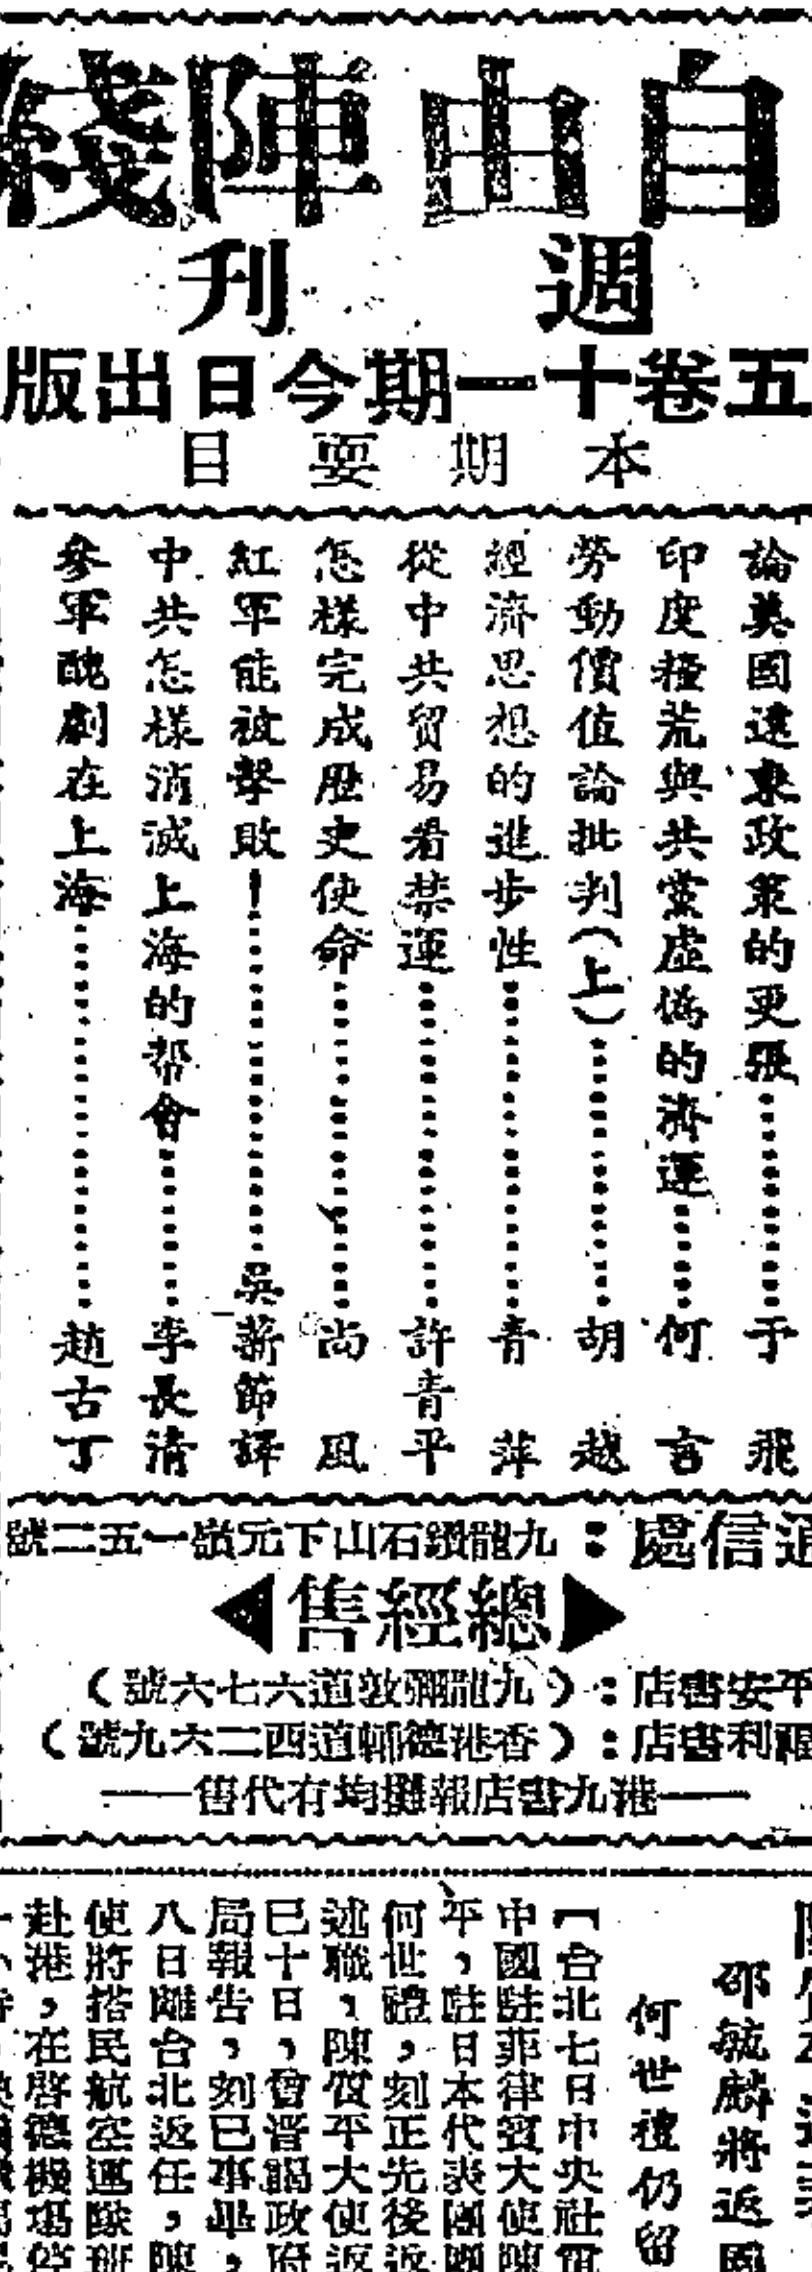 自由陣綫
週刊
五卷十一期今日出版
本期要目
論英國遠東政策的更張⋯⋯于飛
印度糧荒與共黨虛偽的濟運⋯⋯何言
勞動價值論批判（上）⋯⋯胡越
經濟思想的進步性⋯⋯青萍
從中共貿易看禁運⋯⋯許青平
怎樣完成歷史使命⋯⋯尚風
紅軍能被擊敗！⋯⋯吳薪節譯
中共怎樣消滅上海的帮會⋯⋯李長清
參軍醜劇在上海⋯⋯趙古丁
通信處：九龍鑽石山下元嶺一五二號
總經售
平安書店：（九龍彌敦道六七六號）
利書店：（香港德輔道四二六九號）
——港九書店報攤均有代售——
邵毓麟將返國
何世禮仍留
【台北七日中央社電
中國駐菲律賓大使陳
平，駐日本代表團團
何世禮，刻正先後返
述職，陳質平大使返
已十日，曾晋謁政府
局報告，刻已事畢，
八日離台北返任，陳
使將搭民航空運隊班
赴港，在啓德機場停